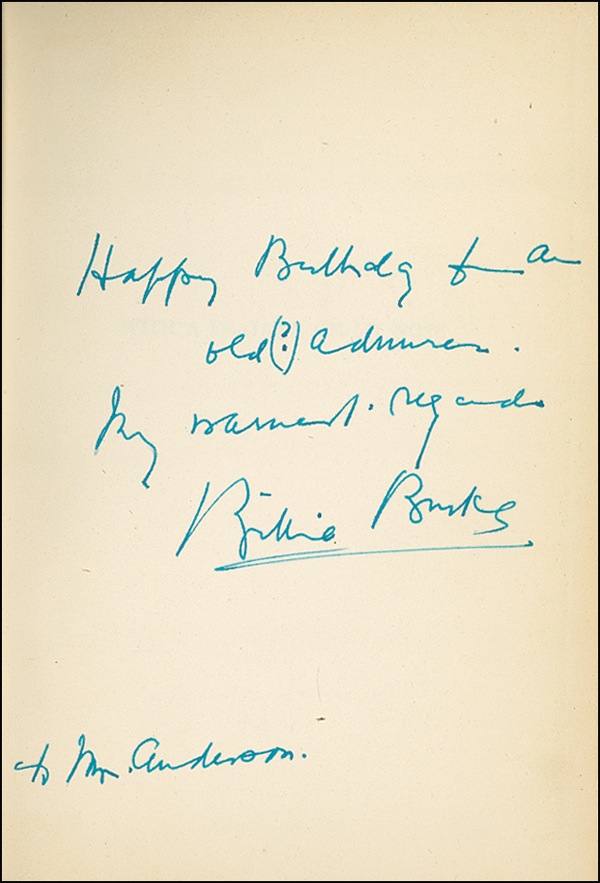 Happy Birthday an
old(?) admirer.
My warmest regards
Billie Burke
to Mr. Anderson.